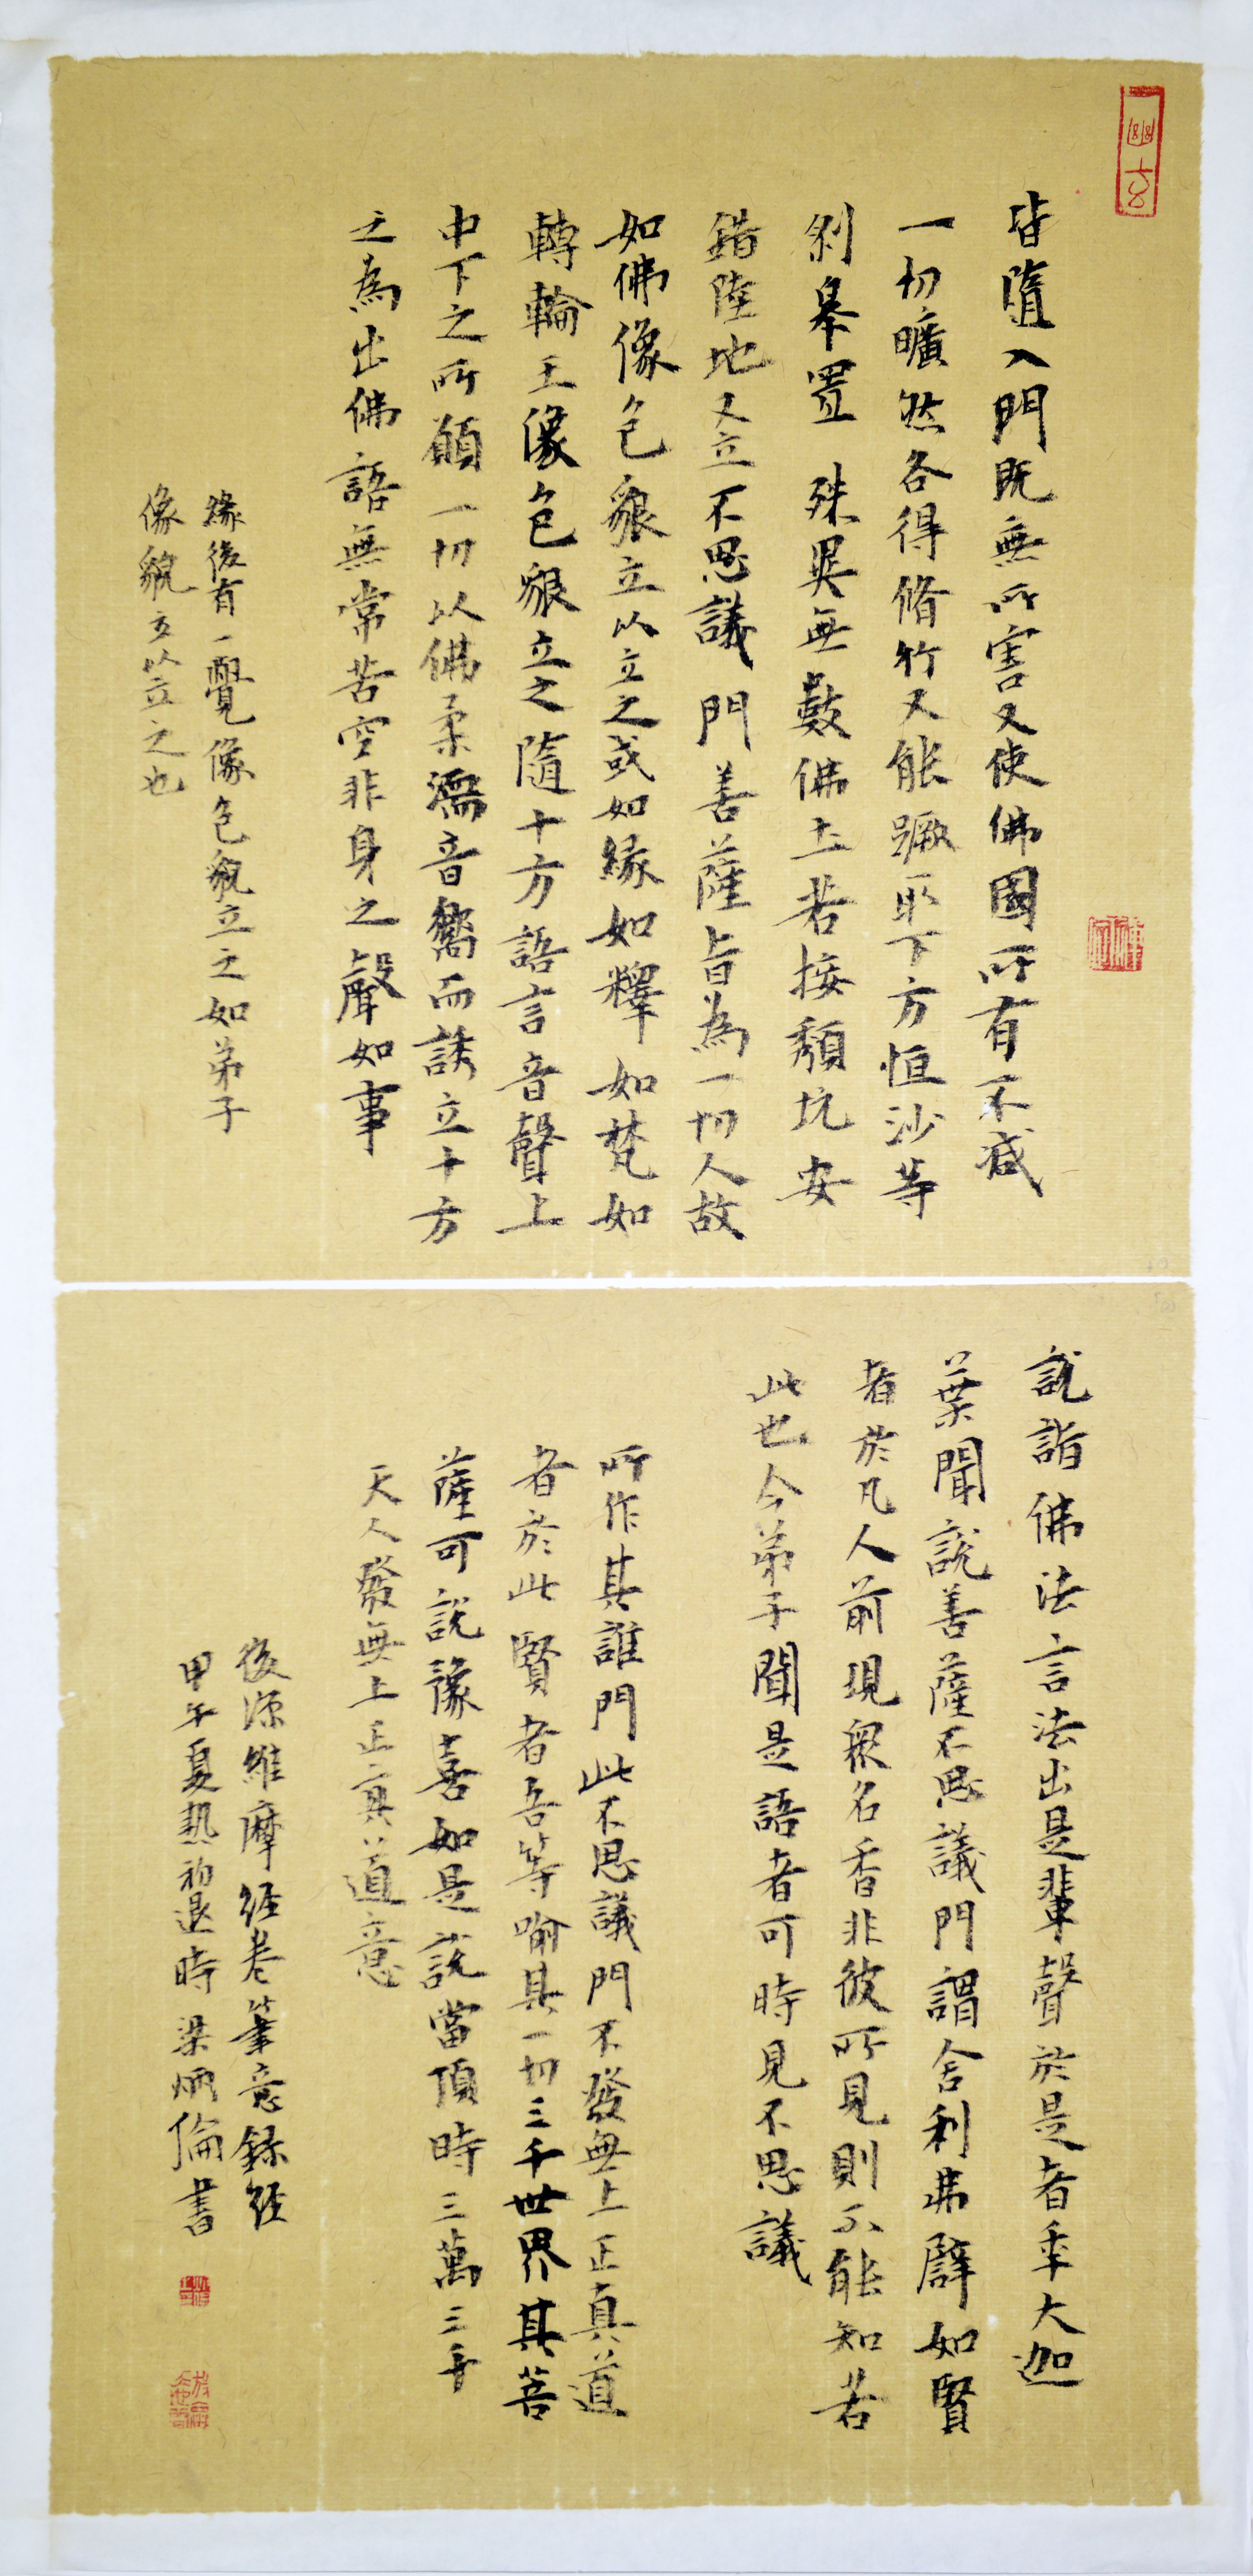 幽玄
皆隨入門既無所害又使佛國所有不減
一切曠然各得脩竹又能蹶取下方恒沙等
剎舉置殊異無數佛土若接頹坑安
錯陸地又立不思議門菩薩皆為一切人故
如佛像色貌立以立之或如緣如釋如梵如
轉輪王像色貌立之隨十方語言音聲上
中下之所願一切以佛柔濡音嚮而誘立十方
之為出佛語無常苦空非身之聲如事
緣後有一覺像色貌立之如弟子
像貌立以立之也
說諸佛法言法出是輩聲於是者年大迦
葉聞說菩薩不思議門謂舍利弗譬如賢
者於凡人前現眾名香非彼所見則不能知若
此也今弟子聞是語者可時見不思議
所作其誰門此不思議門不發無上正真道
者於此賢者吾等喻其一切三千世界其菩
薩可說豫喜如是說當頂時三萬二千
天人發無上正真道意
後涼維摩經卷筆意錄經
甲午夏熱初退時梁炳倫書